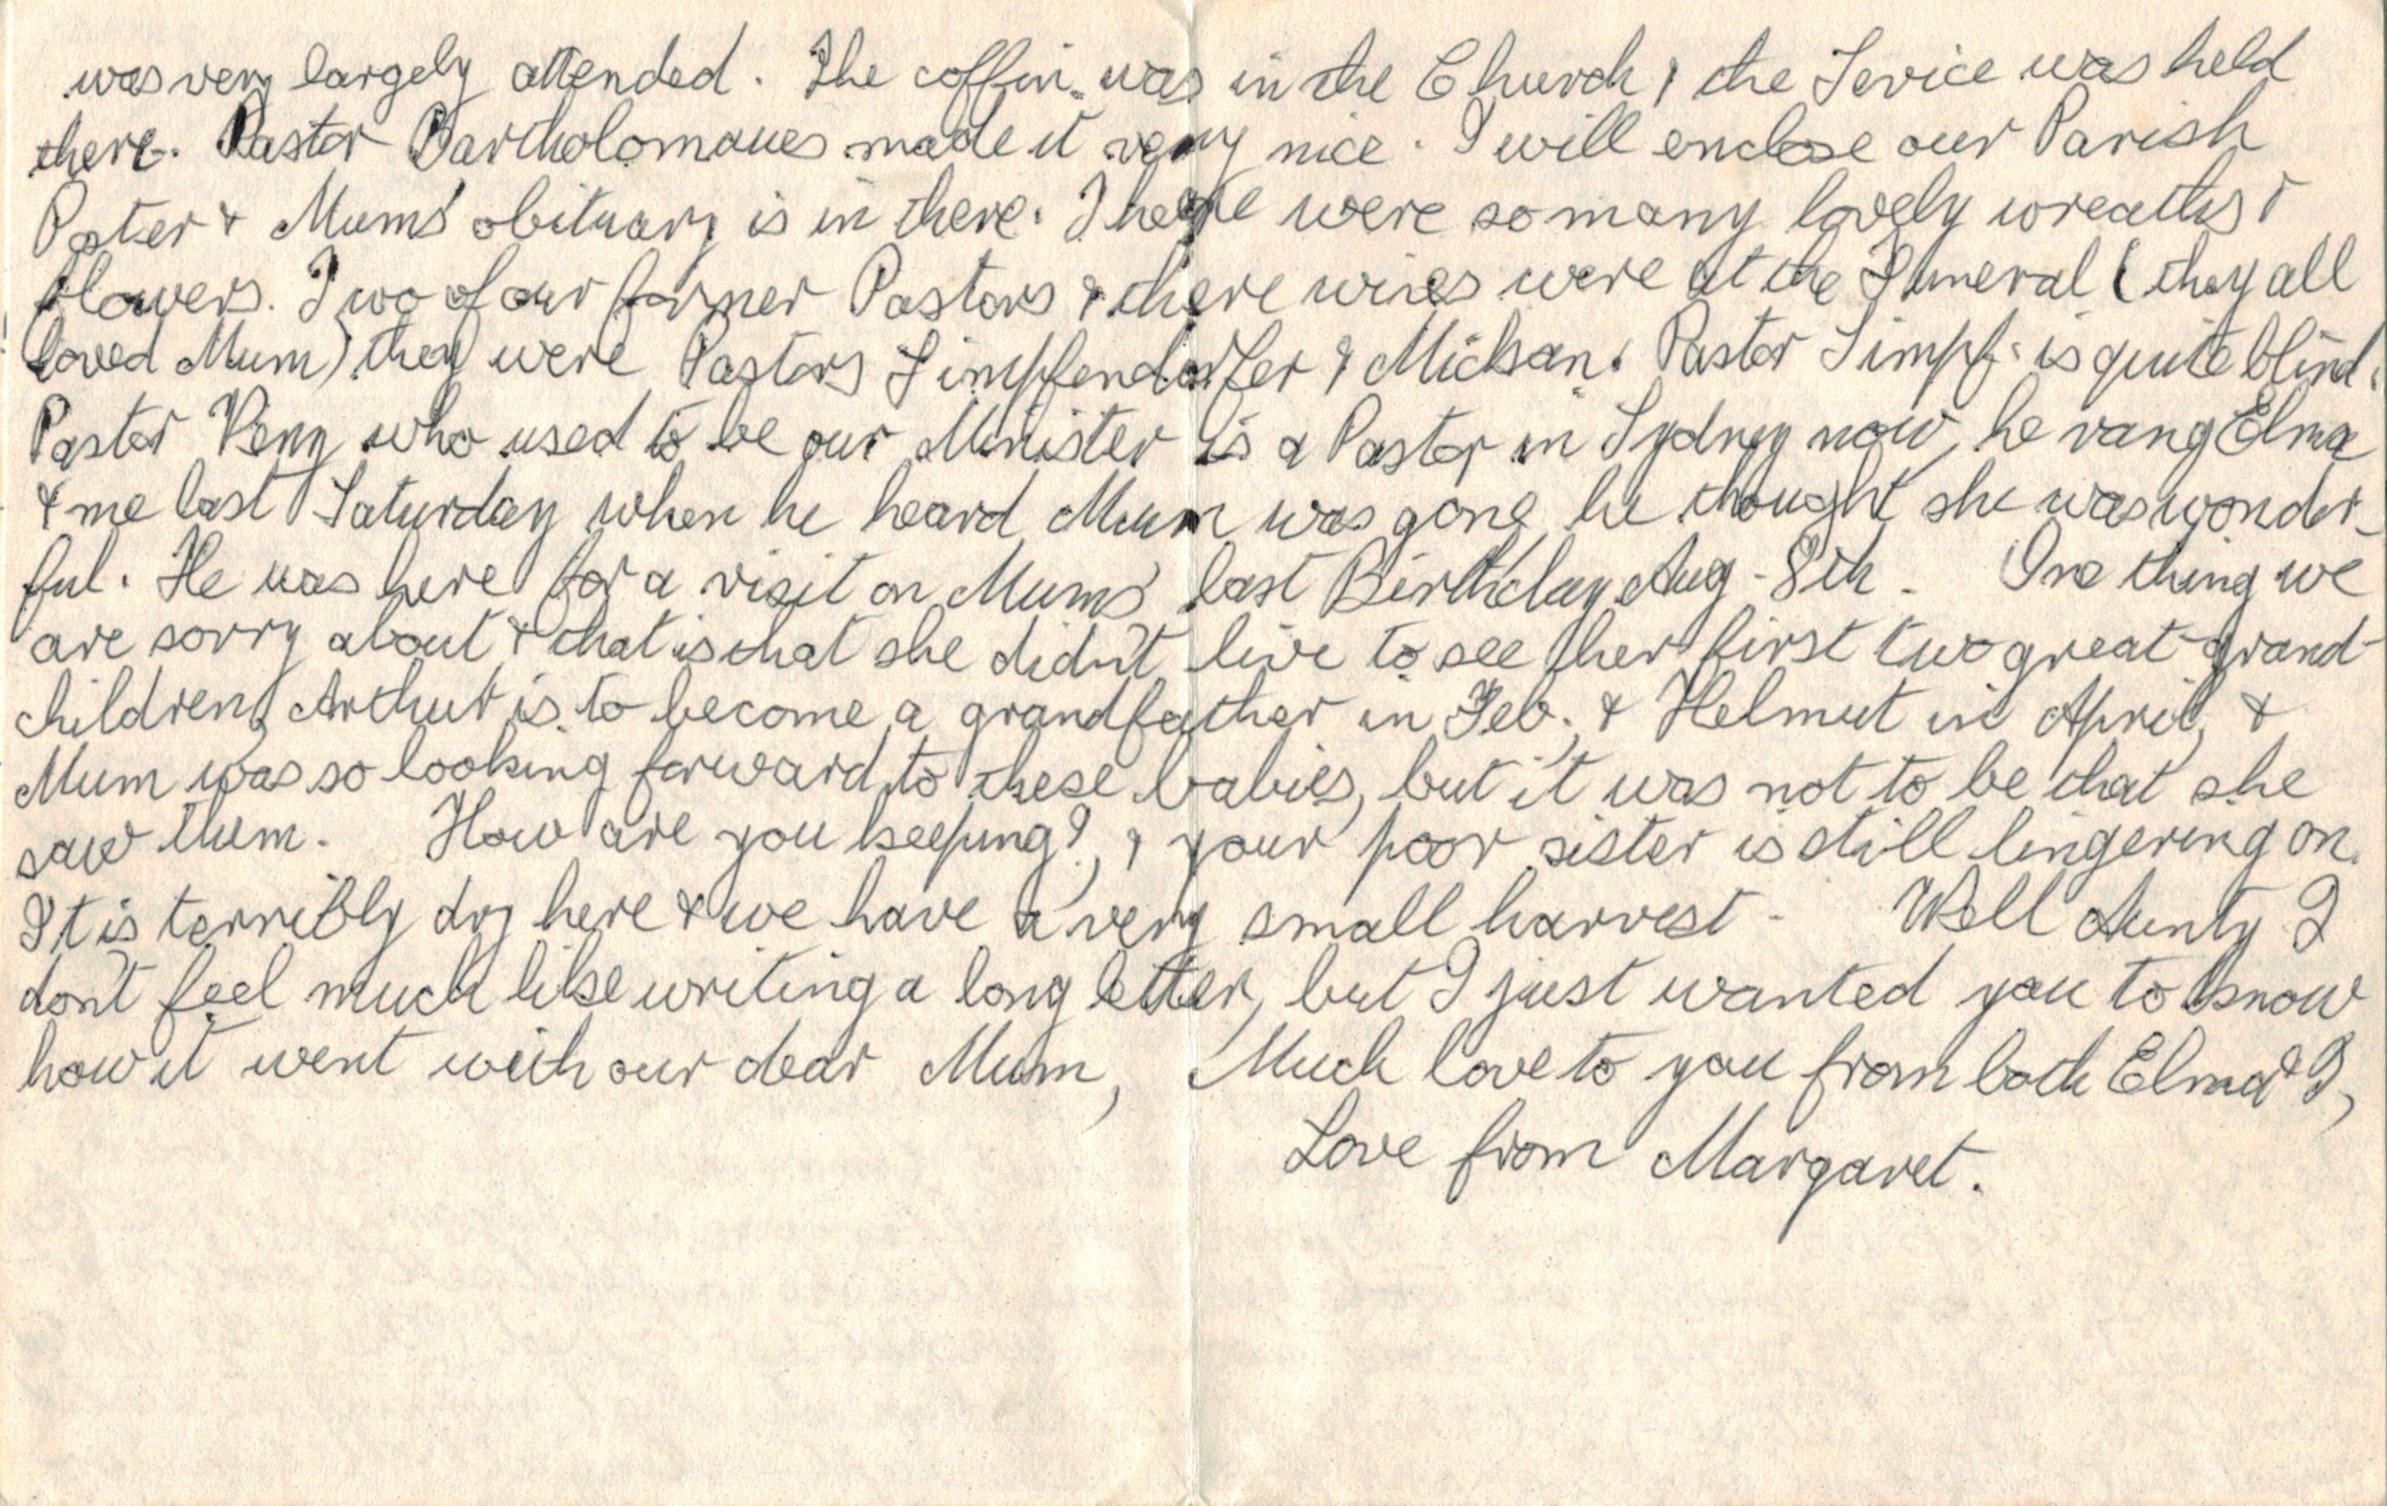 was very largely attended. The coffin was in the Church & the Service was held
there. Pastor Bartholomaues made it very nice. I will enclose our Parish
Pater & Mums' obituary is in there. There were so many lovely wreaths &
flowers. Two of our former Pastors & there wives were at the Funeral (they all
loved Mum) they were Pastors Simpfendorfer & Mickan. Pastor Simpf. is quite blind.
Pastor who used to be our Minister is a Pastor in Sydney now, he rang Elma
& me last Saturday when he heard Mum was gone he thought she was wonder-
ful. He was here for a visit on Mums' last Birthday Aug - 8th. One thing we
are sorry about & that is that she didn't live to see her first two great-grand-
children, Arthur is to become a grandfather in Feb. & Helmut in April, &
Mum was so looking forward to these babies, but it was not to be that she
saw them. How are you keeping?, & your poor sister is still lingering on.
It is terribly dry here & we have a very small harvest. Well Aunty I
don't feel much like writing a long letter, but I just wanted you to know
how it went with our dear Mum, Much love to you from both Elma & I,
Love from Margaret.